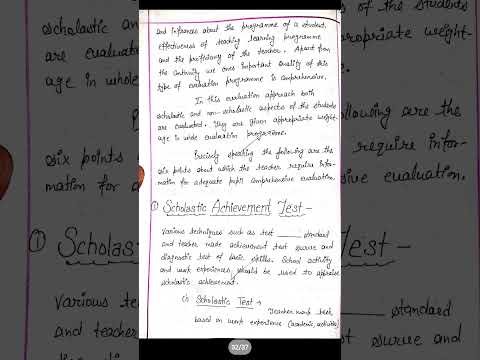 and infrances about the programme of a student,
effectiveness of teaching learning programme
and the proficiency of the teacher. Apart from
the continuity we ones important quality of this
type of evaluation programme is comprehensive.
In this evaluation approach both
scholastic and non-scholastic aspects of the students
are evaluated. They are given appropriate weight-
age in whole evaluation programme.
Precisely speaking the following are the
six points about which the teacher require infor-
mation for adequate pupil comprehensive evaluation.
① Scholastic Achievement Test -
Various techniques such as test ____ standard
and teacher made achievement test survue and
diagnostic test of basic skills. School activity
and work experiences should be used to appraise
scholastic achievement.
(i) Scholastic Test →
Teacher work test
based on work experience (academic, activities)
32/37
scholastic an
are evaluate
age in whole
six points
mation for a
① Scholas
Various te
and teache
of the students
ropriate weight-
following are the
require infor-
sive evaluation.
Test -
standard
t survue and